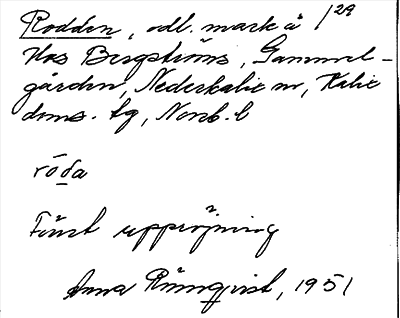 Rodden, odl. mark å /29
Hos Bergströms, Gammel-
gården, Nederkalix nr, Kalix
doms. tg, Norrb. l
röda
Först uppröjning
Anna Römqvist, 1951